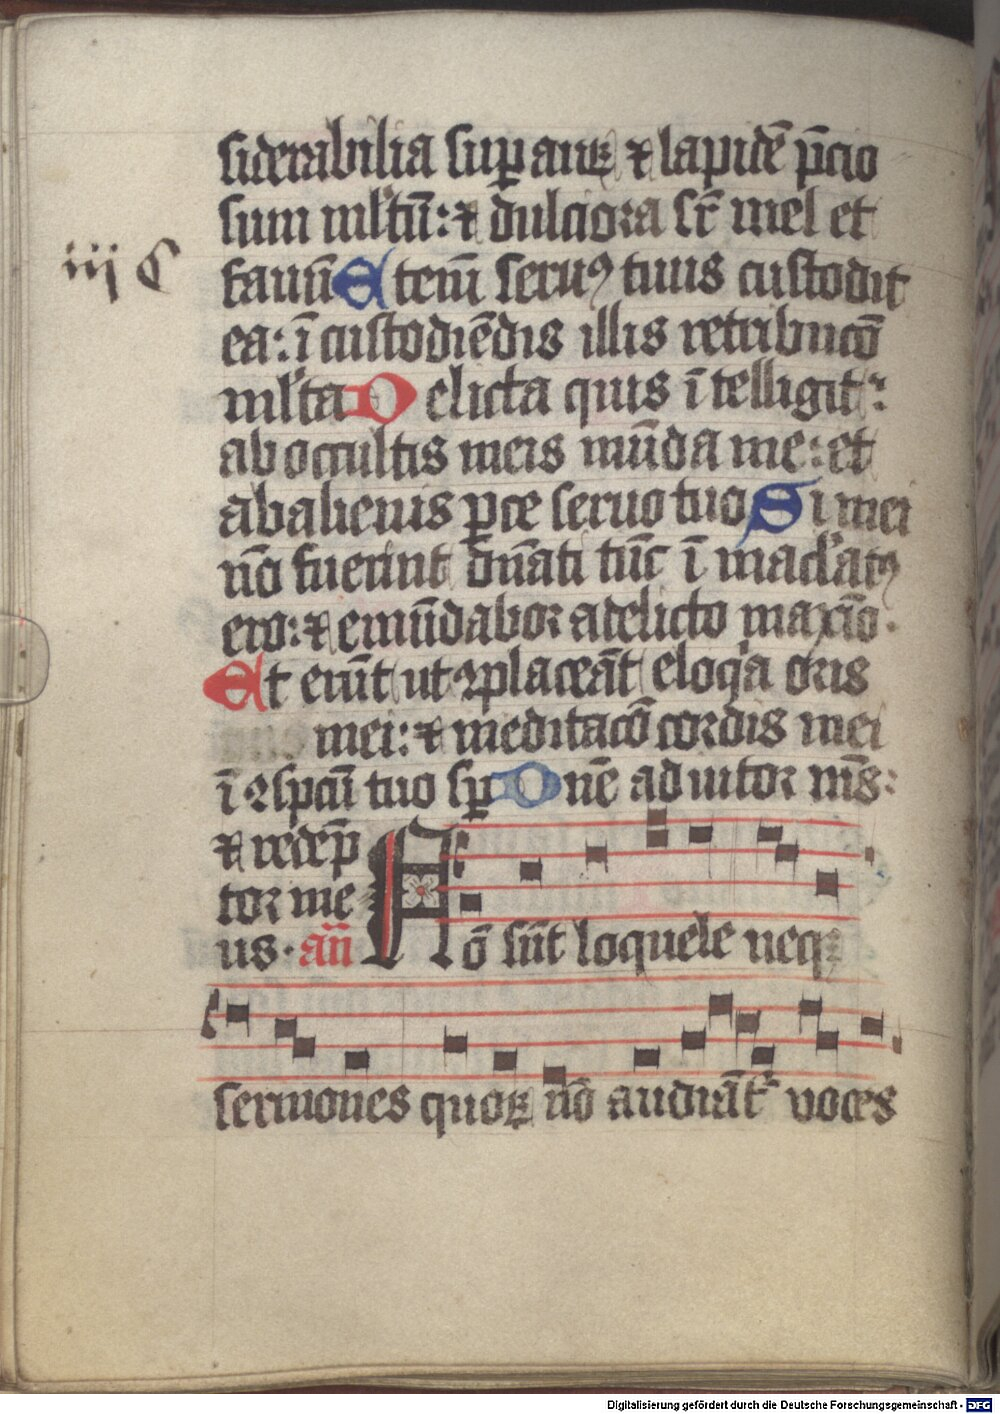 siderabilia sup auꝝ ⁊ lapidē p̄cio
sum ml̓tū: ⁊ dulciora sr̄ mel et
iij C
fauū Etenī seruꝯ tuus custodit
ea: ī custodiēdis illis retribucō
ml̓ta Delicta quis ītelligit:
ab occultis meis mūda me: et
ab alienis ꝑce seruo tuo Si mei
nō fuerint dn̄ati tūc īmacl̓atꝯ
ero: ⁊ emūdabor a delicto maxīo.
Et erūt ut ꝯplaceāt eloq̓a oris
mei: ⁊ meditacō cordis mei
ī ꝯspcū tuo sꝑ Dn̄e adiutor ms̄:
⁊ redēp
tor me
us. an̄ Nō sūt loquele neqꝫ
sermones quoꝝ nō audiāt᷑ voces
Digitalisierung gefördert durch die Deutsche Forschungsgemeinschaft - DFG